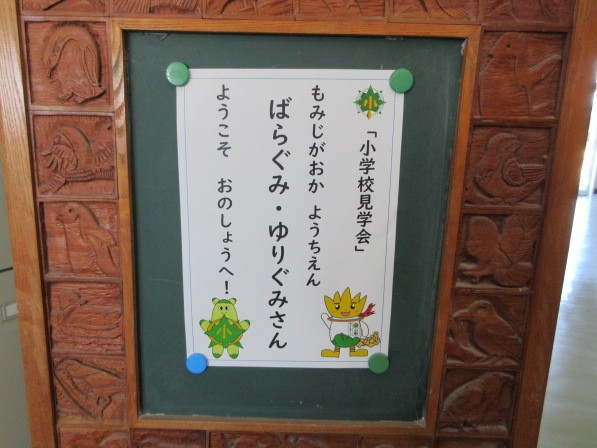 小
「小学校見学会」
もみじがおか ようちえん
ばらぐみ・ゆりぐみさん
ようこそ おのしょうへ!
小